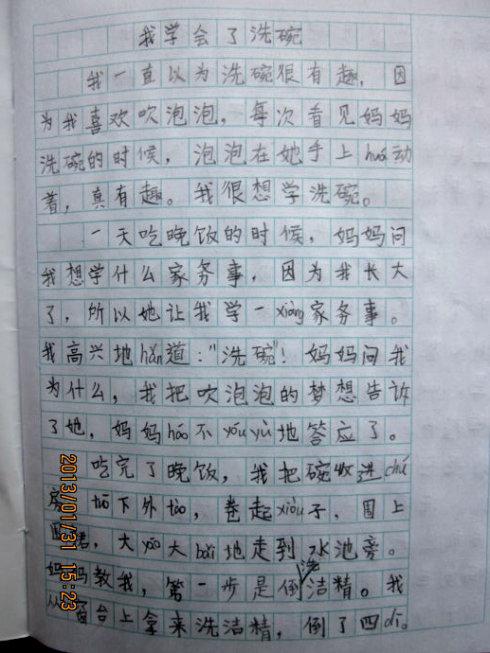 我学会了洗碗
我一直以为洗碗很有趣，因
为我喜欢吹泡泡，每次看见妈妈
洗碗的时候，泡泡在她手上huá动
着，真有趣。我很想学洗碗。
一天吃晚饭的时候，妈妈问
我想学什么家务事，因为我长大
了，所以她让我学一xiàng家务事。
我高兴地hǎn道："洗碗"！妈妈问我
为什么，我把吹泡泡的梦想告诉
了她，妈妈háo不yóuyù地答应了。
吃完了晚饭，我把碗收进chú
下外tào，卷起xiù子，围上
，大yáo大bǎi地走到水池旁。
妈妈教我，第一步是倒洗洁精。我
从台上拿来洗洁精，倒了四dī。
2013/01/31 15:23